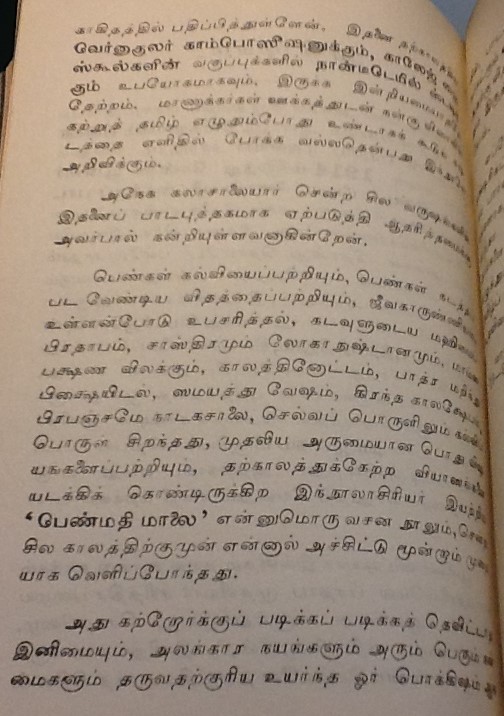 காகிதத்தில் பதிப்பித்துள்ளேன். இதனை தற்காலத்தி
வேர்னாகுலர் காம்பொஸிஷனுக்கும், காலேஜ்
ஸ்கூல்களின் வகுப்புக்களில் நான்டீடெயில்
கும் உபயோகமாகவும். இருக்க இன்றியமையா
தேற்றம். மாணாக்கர்கள் ஊக்கத்துடன் கன்கு
கற்றுத் தமிழ் எழுதும்போது உண்டாகக் கூடு
டத்தை எளிதில் போக்க வல்லதென்பது இந்
அறிவிக்கும்.
அநேக கலாசாலையார் சென்ற சில வருஷங்களி
இதனைப் பாடபுத்தகமாக ஏற்படுத்தி ஆதரித்தமை
அவர்பால் கன்றியுள்ளவனாகின்றேன்.
பெண்கள் கல்வியைப்பற்றியும், பெண்கள் கடத்த
பட வேண்டிய விதத்தைப்பற்றியும், ஜீவகாருண்
உள்ளன்போடு உபசரித்தல், கடவுளுடைய மஹிமை
பிரதாபம், சாஸ்திரமும் லோகாநுஷ்டானமும்,
பக்ஷண விலக்கும், காலத்தினோட்டம், பாத்ர மறிந்து
பிக்ஷையிடல், ஸமயத்து வேஷம், கிரந்த காலக்ஷேப
பிரபஞ்சமே நாடகசாலை, செல்வப் பொருளினும் கல்வி
பொருள் சிறந்தது, முதலிய அருமையான பொது விஷ
யங்களைப்பற்றியும், தற்காலத்துக்கேற்ற வியாஸங்களை
யடக்கிக் கொண்டிருக்கிற இந்நூலாசிரியர் இயற்றிய
‘பேண்மதி மாலை’ என்னுமொரு வசன நூலும், சென்ற
சில காலத்திற்குமுன் என்னால் அச்சிட்டு மூன்றும் முறை
யாக வெளிப்போந்தது.
அது கற்றோர்க்குப் படிக்கப் படிக்கத் தெவிட்டா
இனிமையும், அலங்கார நயங்களும் அரும் பெரும்
மைகளும் தருவதற்குரிய உயர்ந்த ஓர் பொக்கிஷம்